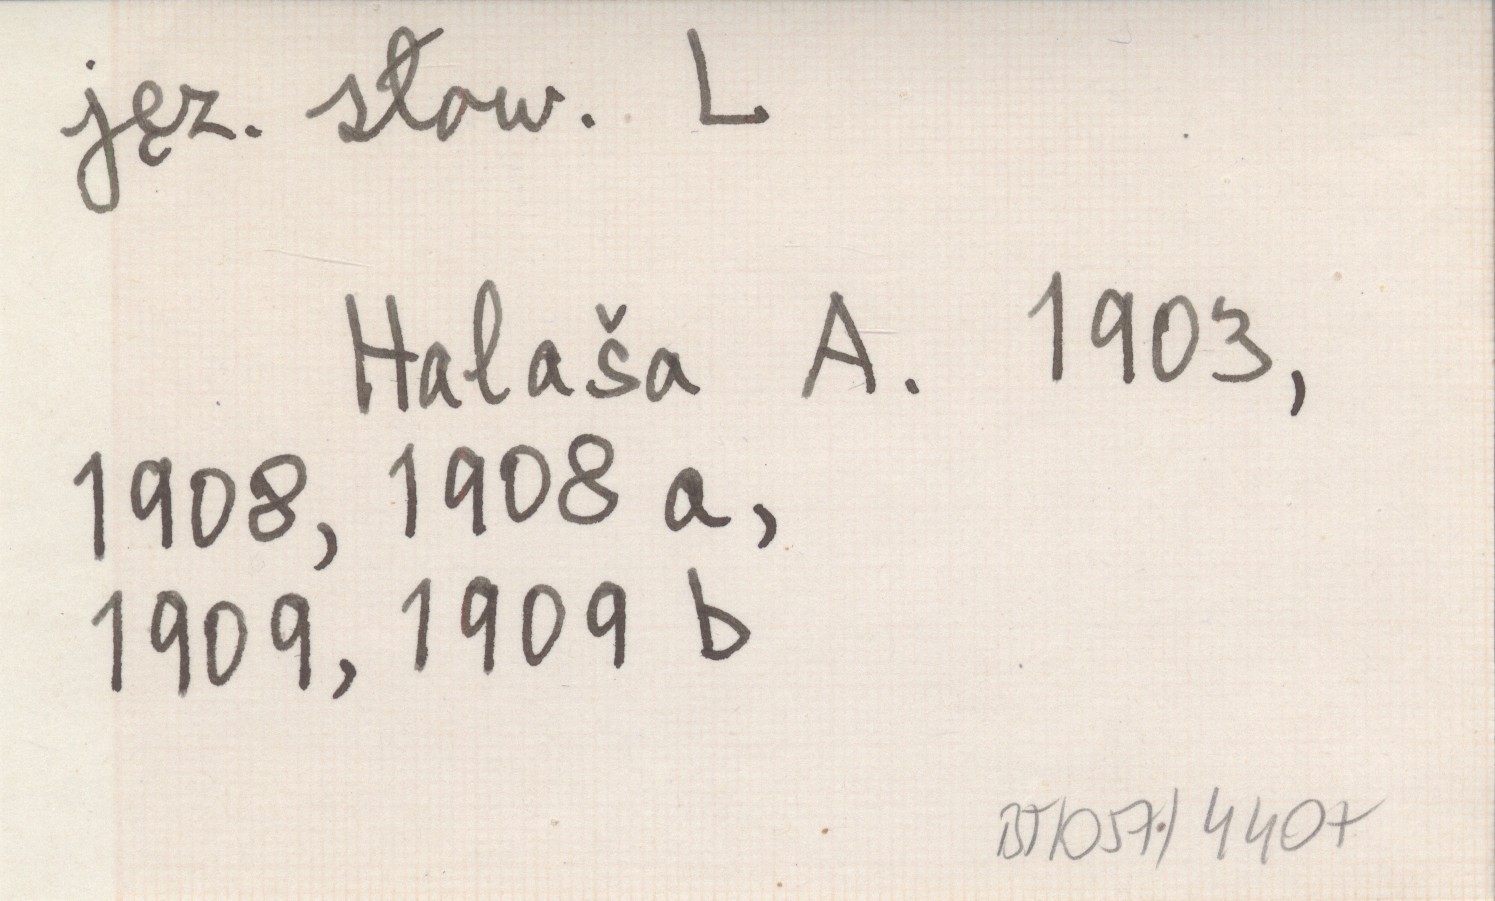 jęz. słow. L
Halaša A. 1903,
1908, 1908 a,
1909, 1909 b
BT/057/4407